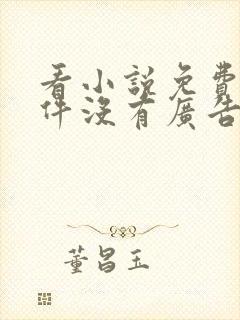 看小說免費
件沒有廣告
董昌玉